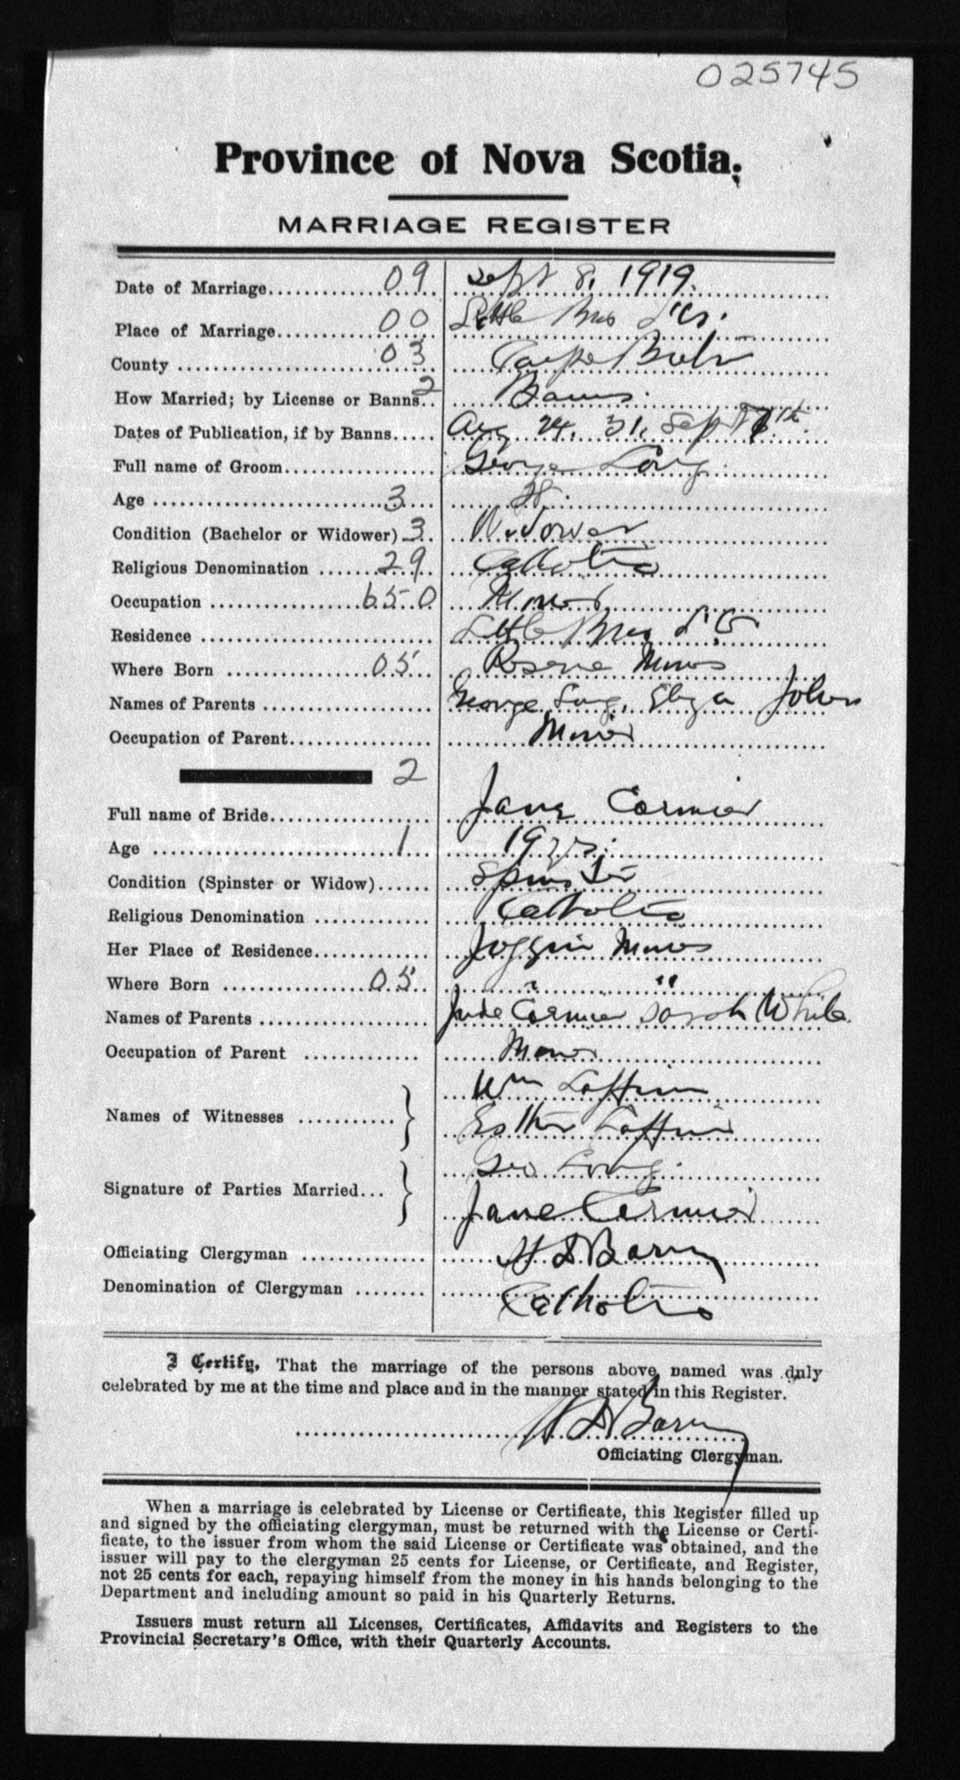 025745
Province of Nova Scotia.
MARRIAGE REGISTER
Date of Marriage 09 Sept 8, 1919.
Place of Marriage 00 Little Bras d'Or.
County 03 Cape Breton
How Married; by License or Banns 2 Banns.
Dates of Publication, if by Banns Aug 24, 31, Sept 7th.
Full name of Groom George Long.
Age 3
Condition (Bachelor or Widower) 3 Widower
Religious Denomination 29 Catholic
Occupation 650 Miner
Residence Little Bras d'Or
Where Born 05 Reserve Mines
Names of Parents George Long, Eliza
Occupation of Parent Miner
2
Full name of Bride Jane Cormier
Age 1 19 yrs.
Condition (Spinster or Widow) Spinster
Religious Denomination Catholic
Her Place of Residence Joggin Mines
Where Born 05 " "
Names of Parents Jude Cormier Sarah White
Occupation of Parent Miner
Wm Laffin
Names of Witnesses
Esther Laffin
Geo Long.
Signature of Parties Married
Jane Cormier
Officiating Clergyman H D Barry
Denomination of Clergyman Catholic
I Certify, That the marriage of the persons above named was duly
celebrated by me at the time and place and in the manner stated in this Register.
H D Barry
Officiating Clergyman.
When a marriage is celebrated by License or Certificate, this Register filled up
and signed by the officiating clergyman, must be returned with the License or Certi-
ficate, to the issuer from whom the said License or Certificate was obtained, and the
issuer will pay to the clergyman 25 cents for License, or Certificate, and Register,
not 25 cents for each, repaying himself from the money in his hands belonging to the
Department and including amount so paid in his Quarterly Returns.
Issuers must return all Licenses, Certificates, Affidavits and Registers to the
Provincial Secretary's Office, with their Quarterly Accounts.